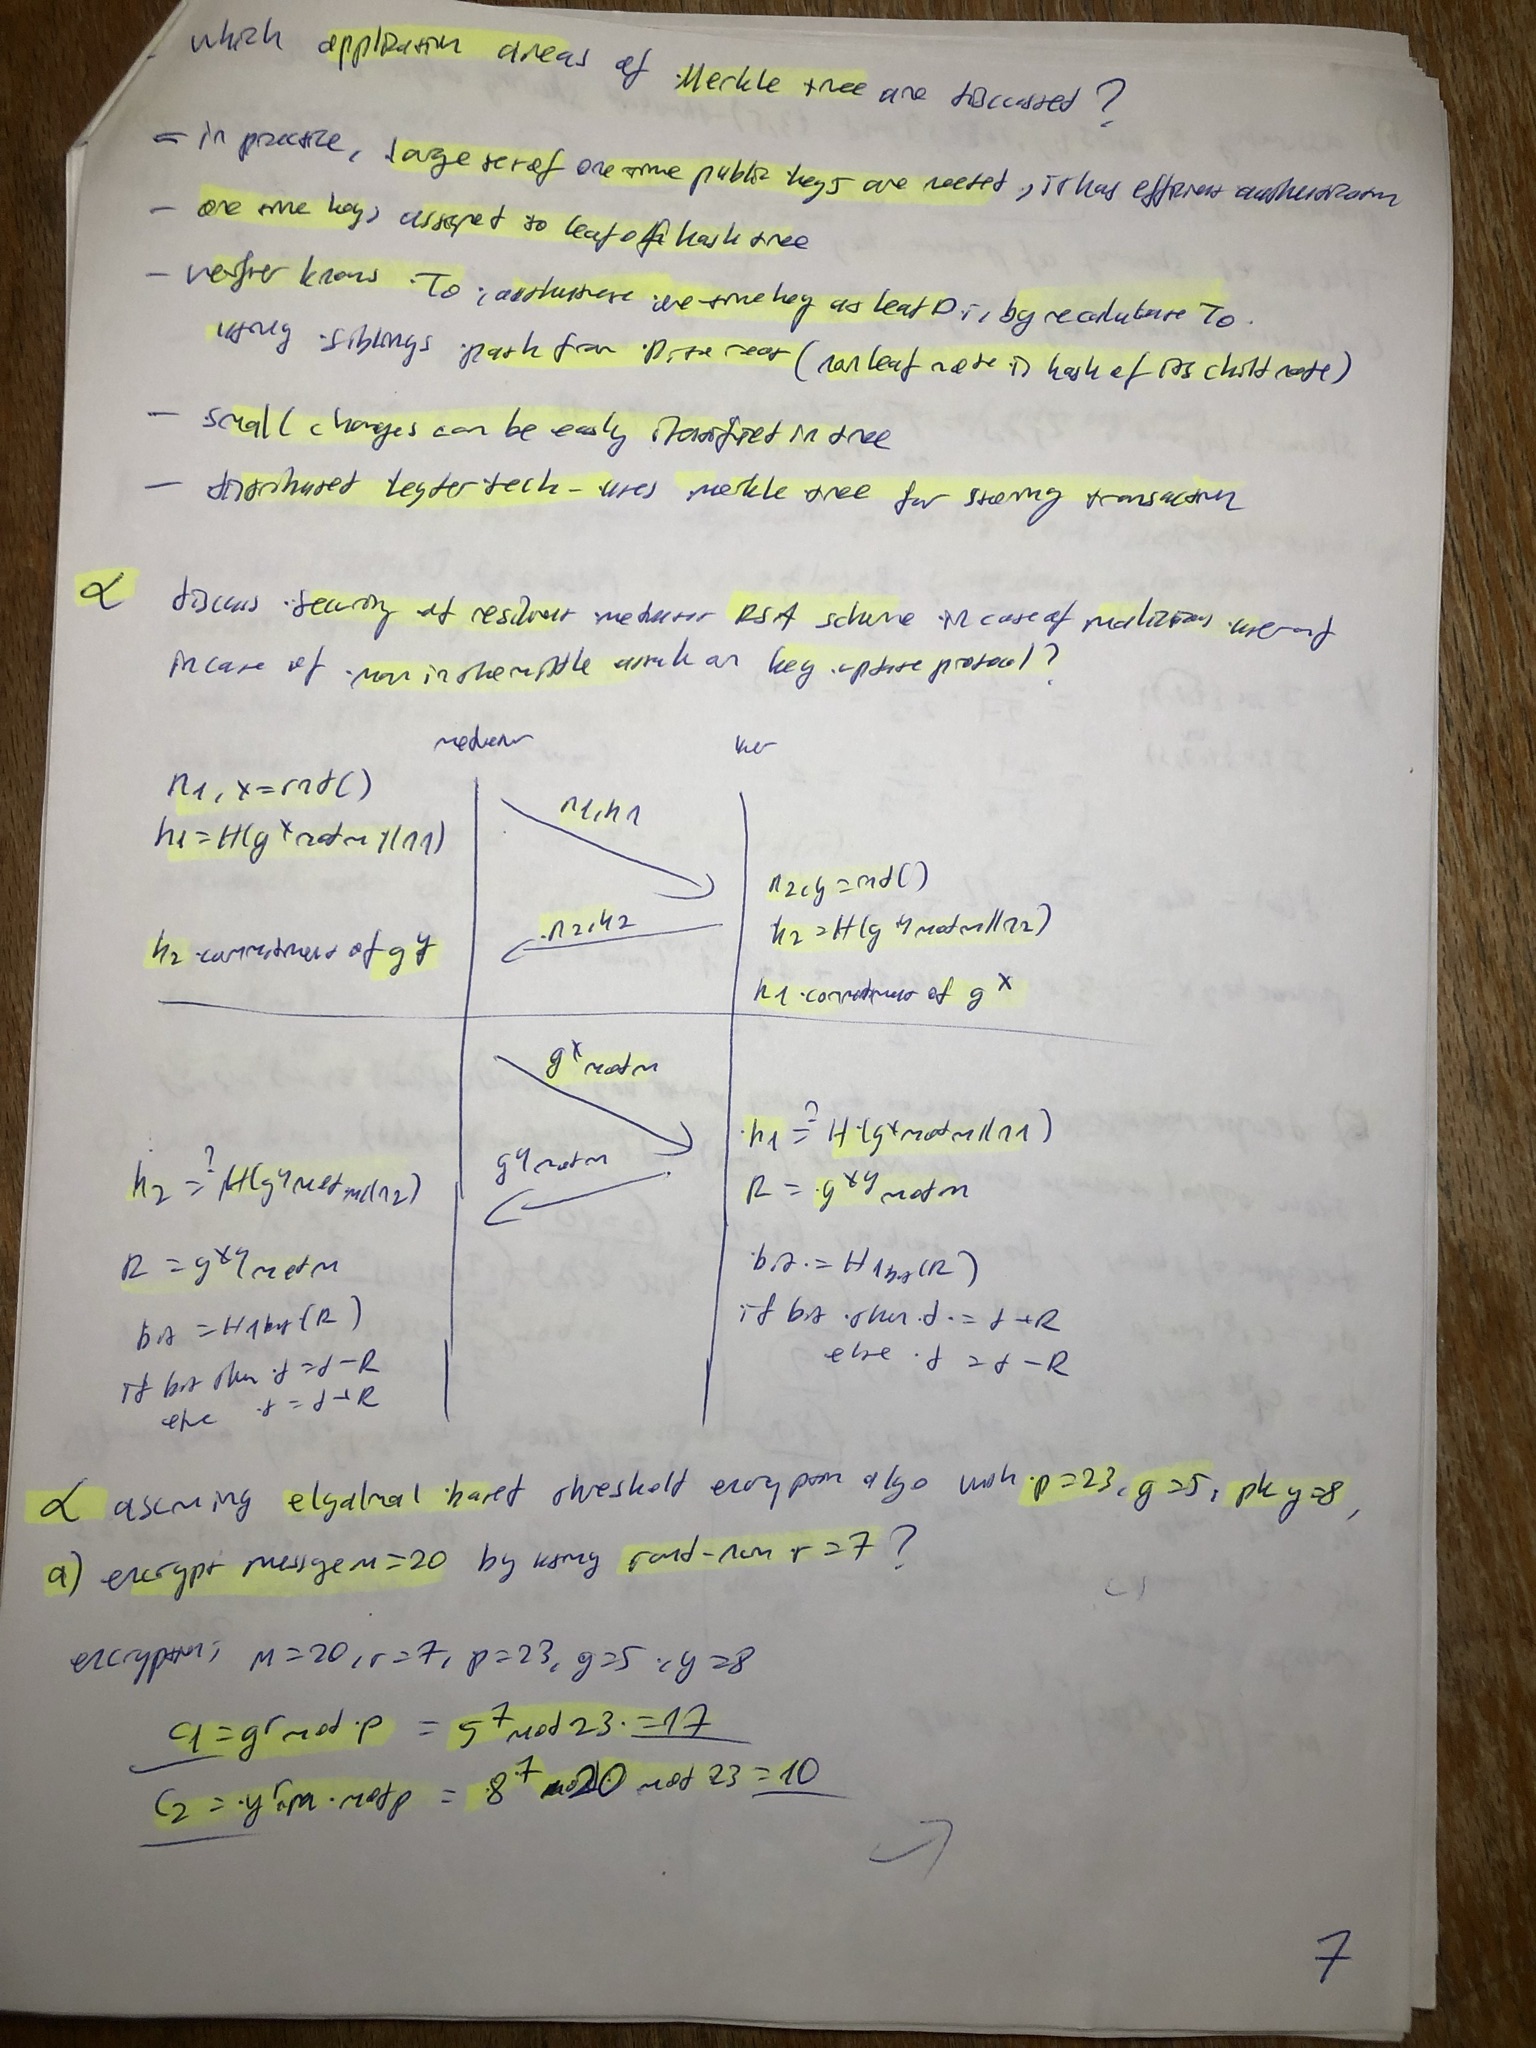 which application areas of Merkle tree are discussed?
- in practice, large set of one time public keys are needed, it has efficient authentication
- one time keys assigned to leaf of hash tree
- verifier knows To, authenticate one-time key as leaf Di, by recalculate To
using siblings path from Di to root (non leaf node is hash of its child node)
- small changes can be easily identified in tree
- distributed ledger tech - uses merkle tree for storing transaction
α discuss security of resilient mediator RSA scheme in case of malicious user and
in case of man in the middle attack on key update protocol?
mediator user
n1, x = rnd()
n1, h1
h1 = H(g^x mod m || n1)
n2, y = rnd()
n2, h2
h2 = H(g^y mod m || n2)
h2 commitment of g^y
h1 commitment of g^x
g^x mod m
h1 =? H(g^x mod m || n1)
g^y mod m
h2 =? H(g^y mod m || n2)
R = g^xy mod m
R = g^xy mod m
bit = H1bit(R)
if bit then d = d + R
else d = d - R
bit = H1bit(R)
if bit then d = d - R
else d = d + R
α assuming elgamal based threshold encryption algo with p=23, g=5, pk y=8,
a) encrypt message m=20 by using rand-num r=7?
encryption; m=20, r=7, p=23, g=5, y=8
c1 = g^r mod p = 5^7 mod 23 = 17
c2 = y^r.m mod p = 8^7 20 mod 23 = 10
7